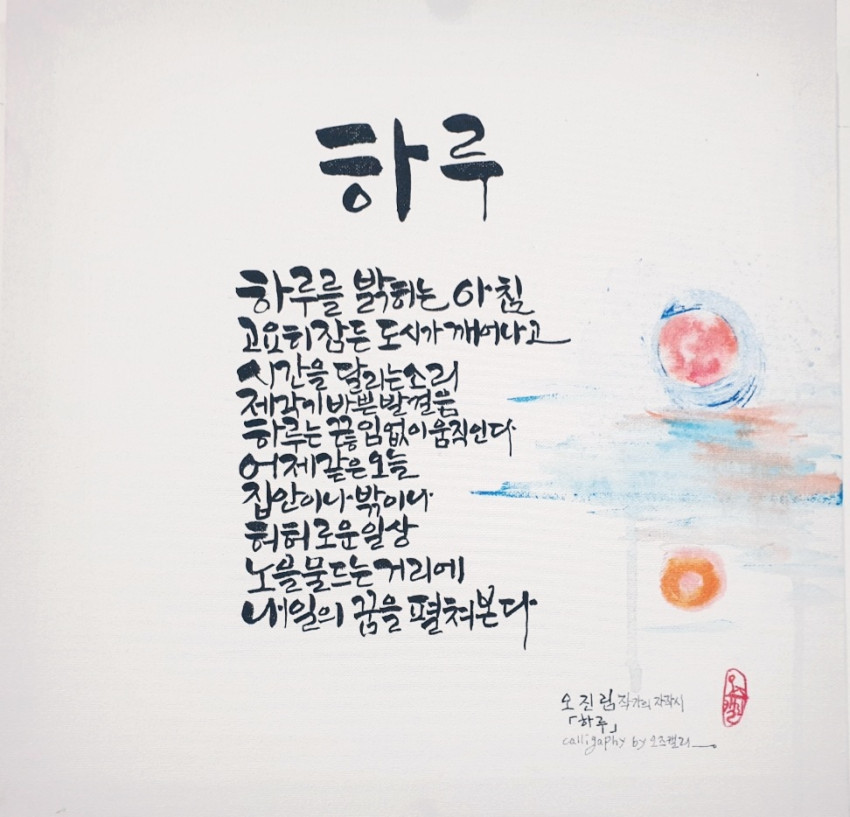 하루
하루를 밝히는 아침
고요히 잠든 도시가 깨어나고
시간을 달리는 소리
제각기 바쁜 발걸음
하루는 끊임없이 움직인다
어제같은 오늘
집안이나 밖이나
허허로운 일상
노을 물드는 거리에
내일의 꿈을 펼쳐본다
오진림 작가의 자작시
「하루」
calligaphy by 오즈캘리